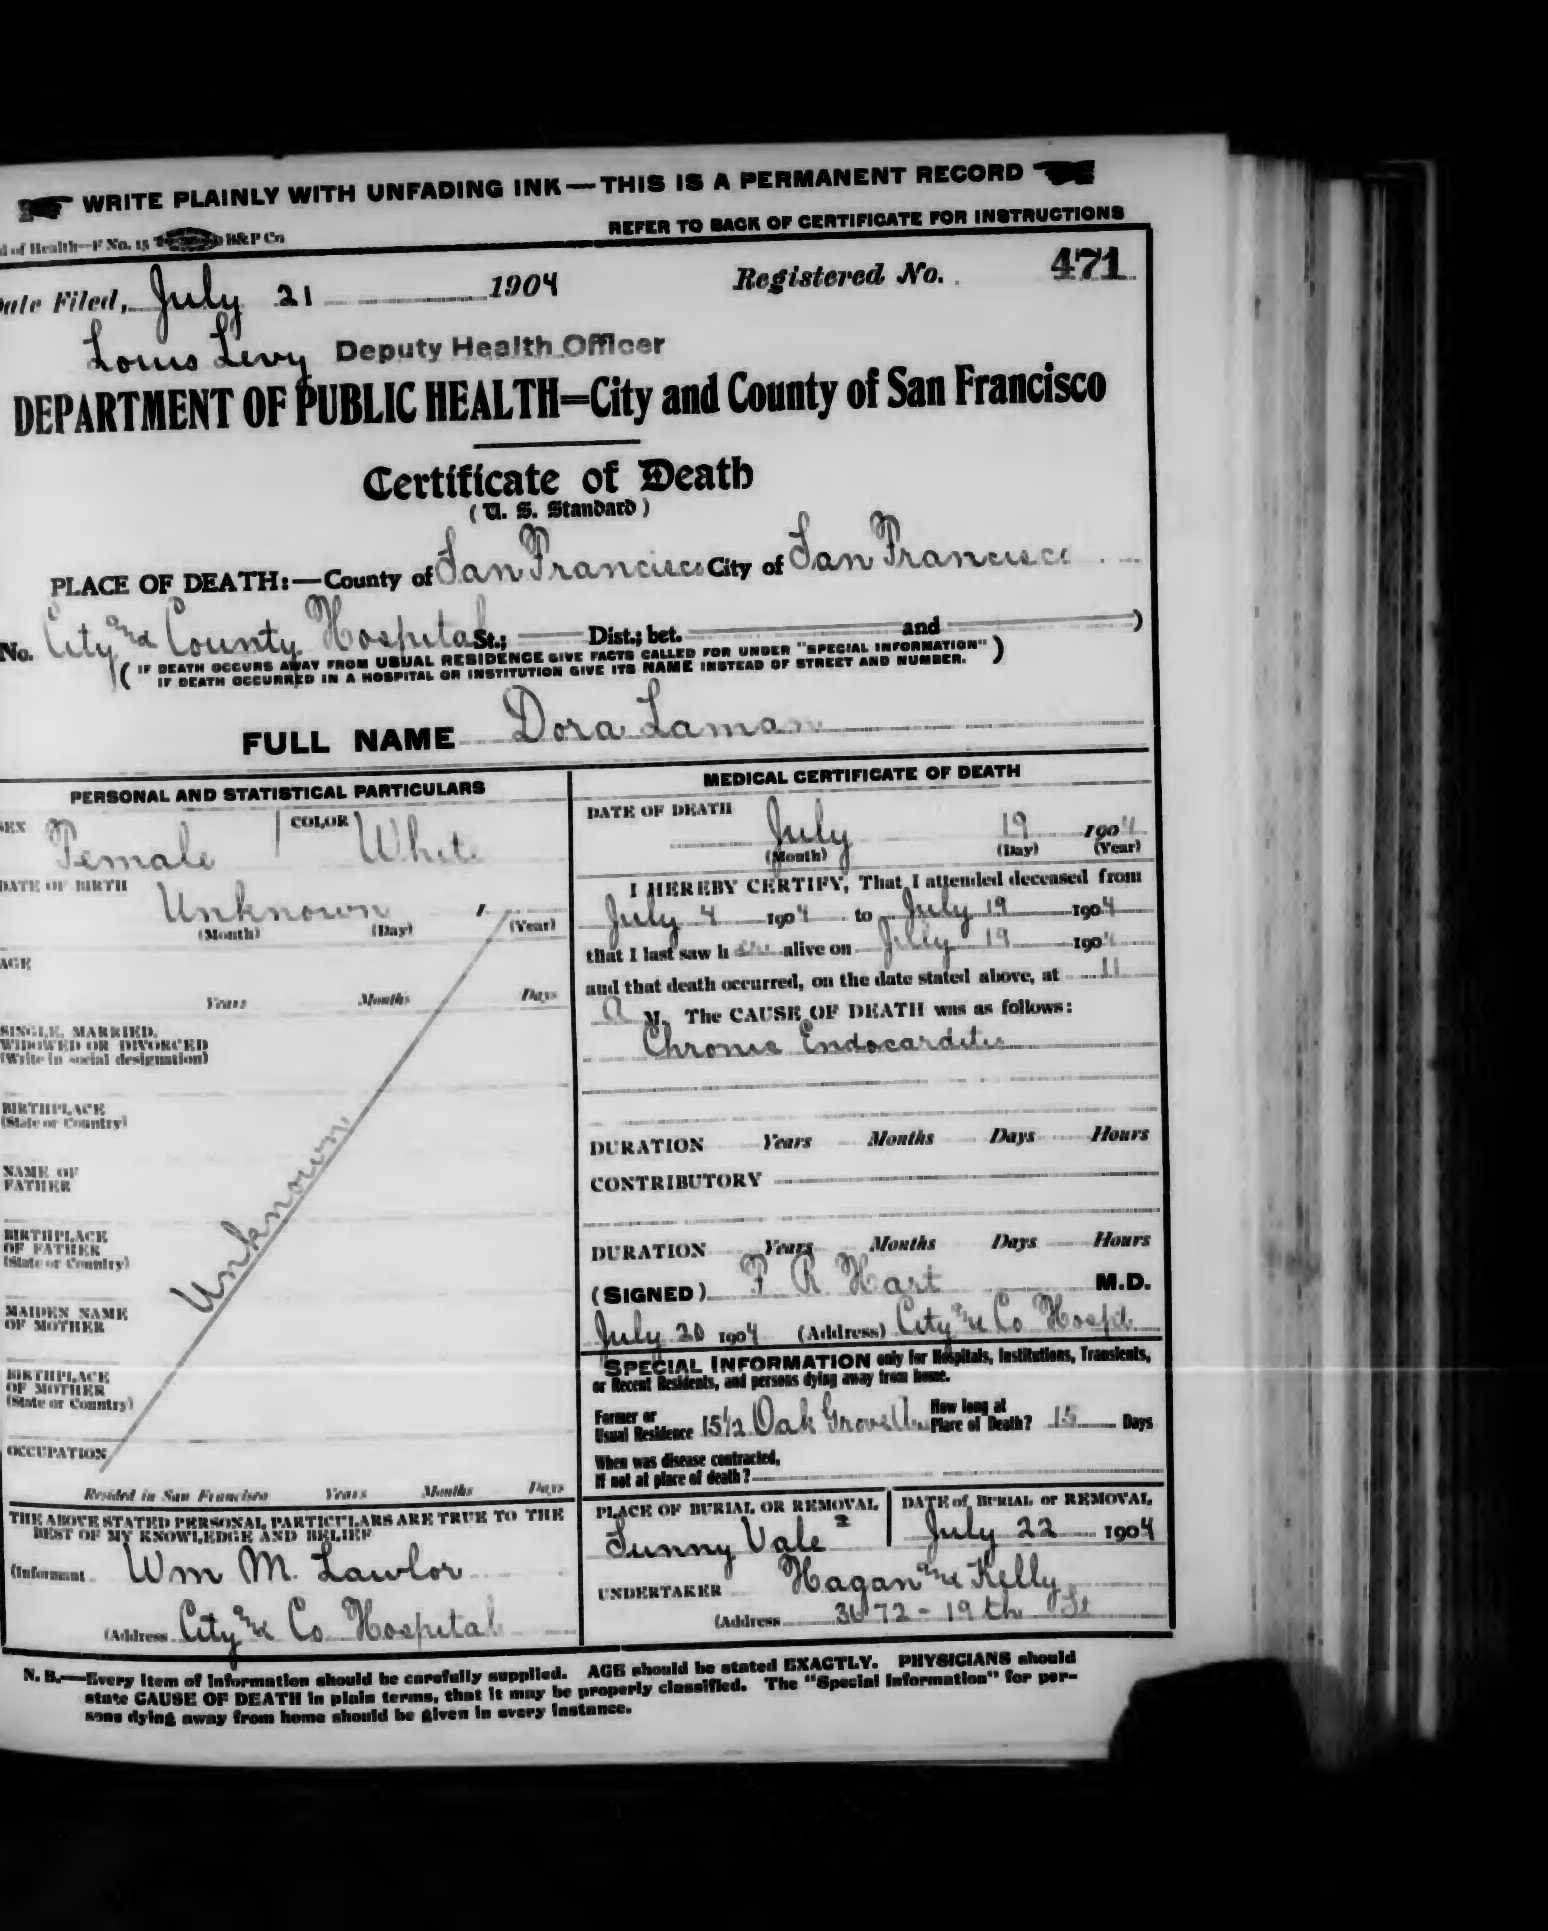 WRITE PLAINLY WITH UNFADING INK—THIS IS A PERMANENT RECORD
REFER TO BACK OF CERTIFICATE FOR INSTRUCTIONS
d of Health—F No. 15 H&P Co
Date Filed, July 21 1904 Registered No. 471
Louis Levy Deputy Health Officer
DEPARTMENT OF PUBLIC HEALTH=City and County of San Francisco
Certificate of Death
(U. S. Standard)
PLACE OF DEATH:—County of San Francisco City of San Francisco
No. City and County Hospital St.; Dist.; bet. and )
( IF DEATH OCCURS AWAY FROM USUAL RESIDENCE GIVE FACTS CALLED FOR UNDER "SPECIAL INFORMATION" )
IF DEATH OCCURRED IN A HOSPITAL OR INSTITUTION GIVE ITS NAME INSTEAD OF STREET AND NUMBER.
FULL NAME Dora Laman
PERSONAL AND STATISTICAL PARTICULARS
SEX Female COLOR White
DATE OF BIRTH Unknown
(Month) (Day) (Year)
AGE
Years Months Days
SINGLE, MARRIED,
WIDOWED OR DIVORCED
(Write in social designation)
BIRTHPLACE
(State or Country)
Unknown
NAME OF
FATHER
BIRTHPLACE
OF FATHER
(State or Country)
MAIDEN NAME
OF MOTHER
BIRTHPLACE
OF MOTHER
(State or Country)
OCCUPATION
Resided in San Francisco Years Months Days
THE ABOVE STATED PERSONAL PARTICULARS ARE TRUE TO THE
BEST OF MY KNOWLEDGE AND BELIEF
(Informant Wm M. Lawlor
(Address City and Co Hospital
MEDICAL CERTIFICATE OF DEATH
DATE OF DEATH
July 19 1904
(Month) (Day) (Year)
I HEREBY CERTIFY, That I attended deceased from
July 4 1904 to July 19 1904
that I last saw h er alive on July 19 1904
and that death occurred, on the date stated above, at 11
A M. The CAUSE OF DEATH was as follows:
Chronic Endocarditis
DURATION Years Months Days Hours
CONTRIBUTORY
DURATION Years Months Days Hours
(SIGNED) F R Hart M.D.
July 20 1904 (Address) City and Co Hospl
SPECIAL INFORMATION only for Hospitals, Institutions, Transients,
or Recent Residents, and persons dying away from home.
Former or
Usual Residence 15 1/2 Oak Grove Av
How long at
Place of Death? 15 Days
When was disease contracted,
If not at place of death?
PLACE OF BURIAL OR REMOVAL
Sunny Vale
DATE of BURIAL or REMOVAL
July 22 1904
UNDERTAKER Hagan and Kelly
(Address 3672-19th St
N. B.—Every item of information should be carefully supplied. AGE should be stated EXACTLY. PHYSICIANS should
state CAUSE OF DEATH in plain terms, that it may be properly classified. The "Special Information" for per-
sons dying away from home should be given in every instance.